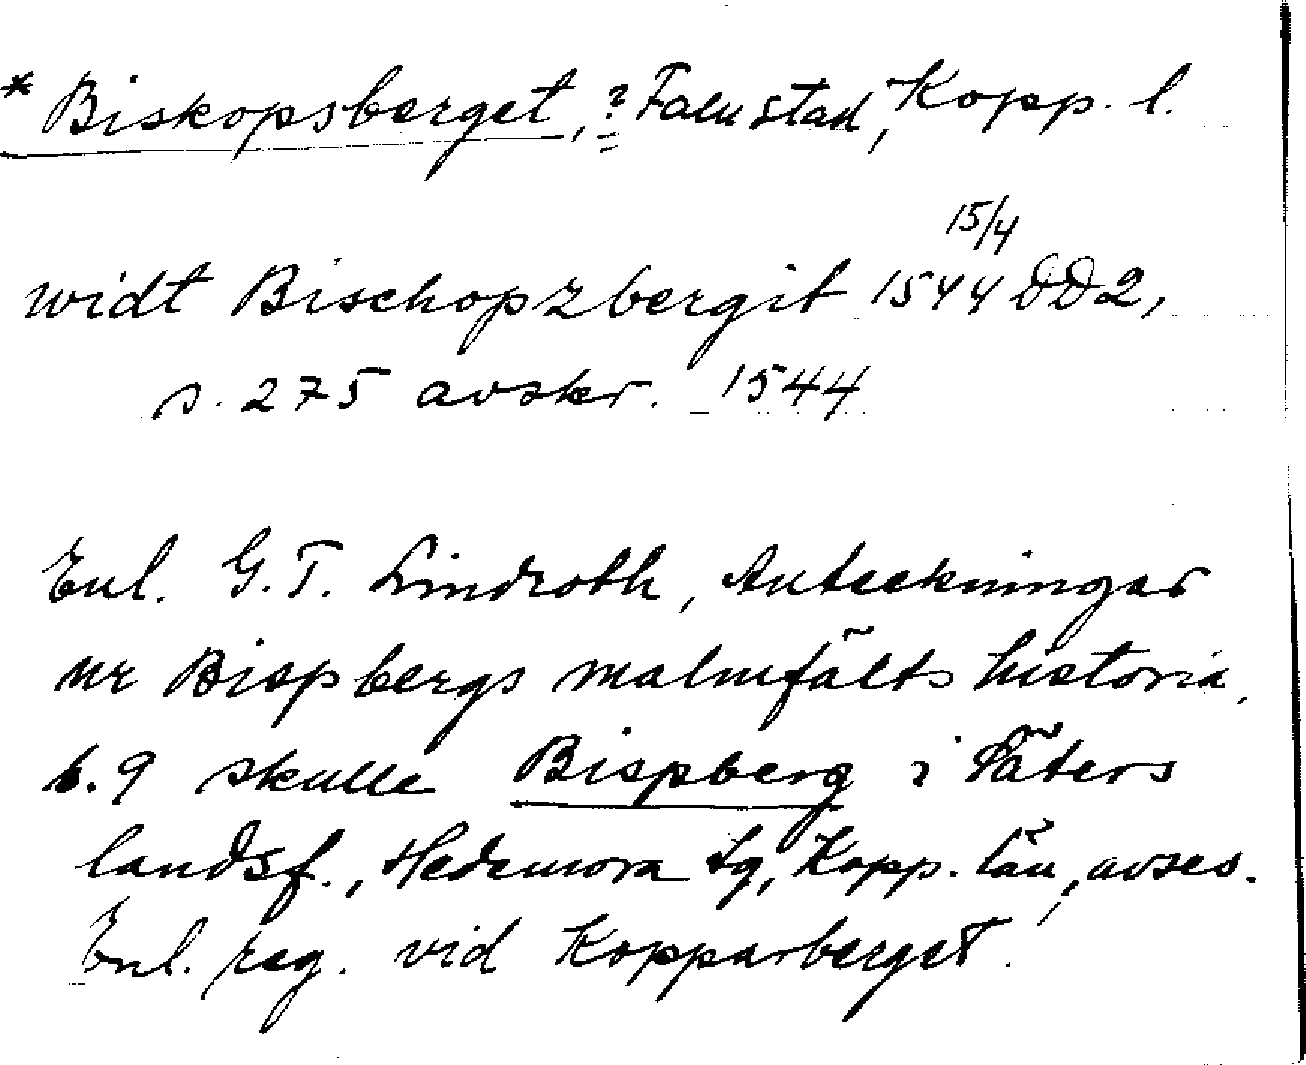 * Biskopsberget, ? Falu stad, Kopp. l.
15/4
widt Bischopzbergit 1544 DD2,
s. 275 avskr. 1544
Enl. G.T. Lindroth, Anteckningar
ur Bispbergs malmfälts historia,
s. 9 skulle Bispberg i Säters
landsf., Hedemora tg, Kopp. län, avses.
Enl. reg. vid Kopparberget.